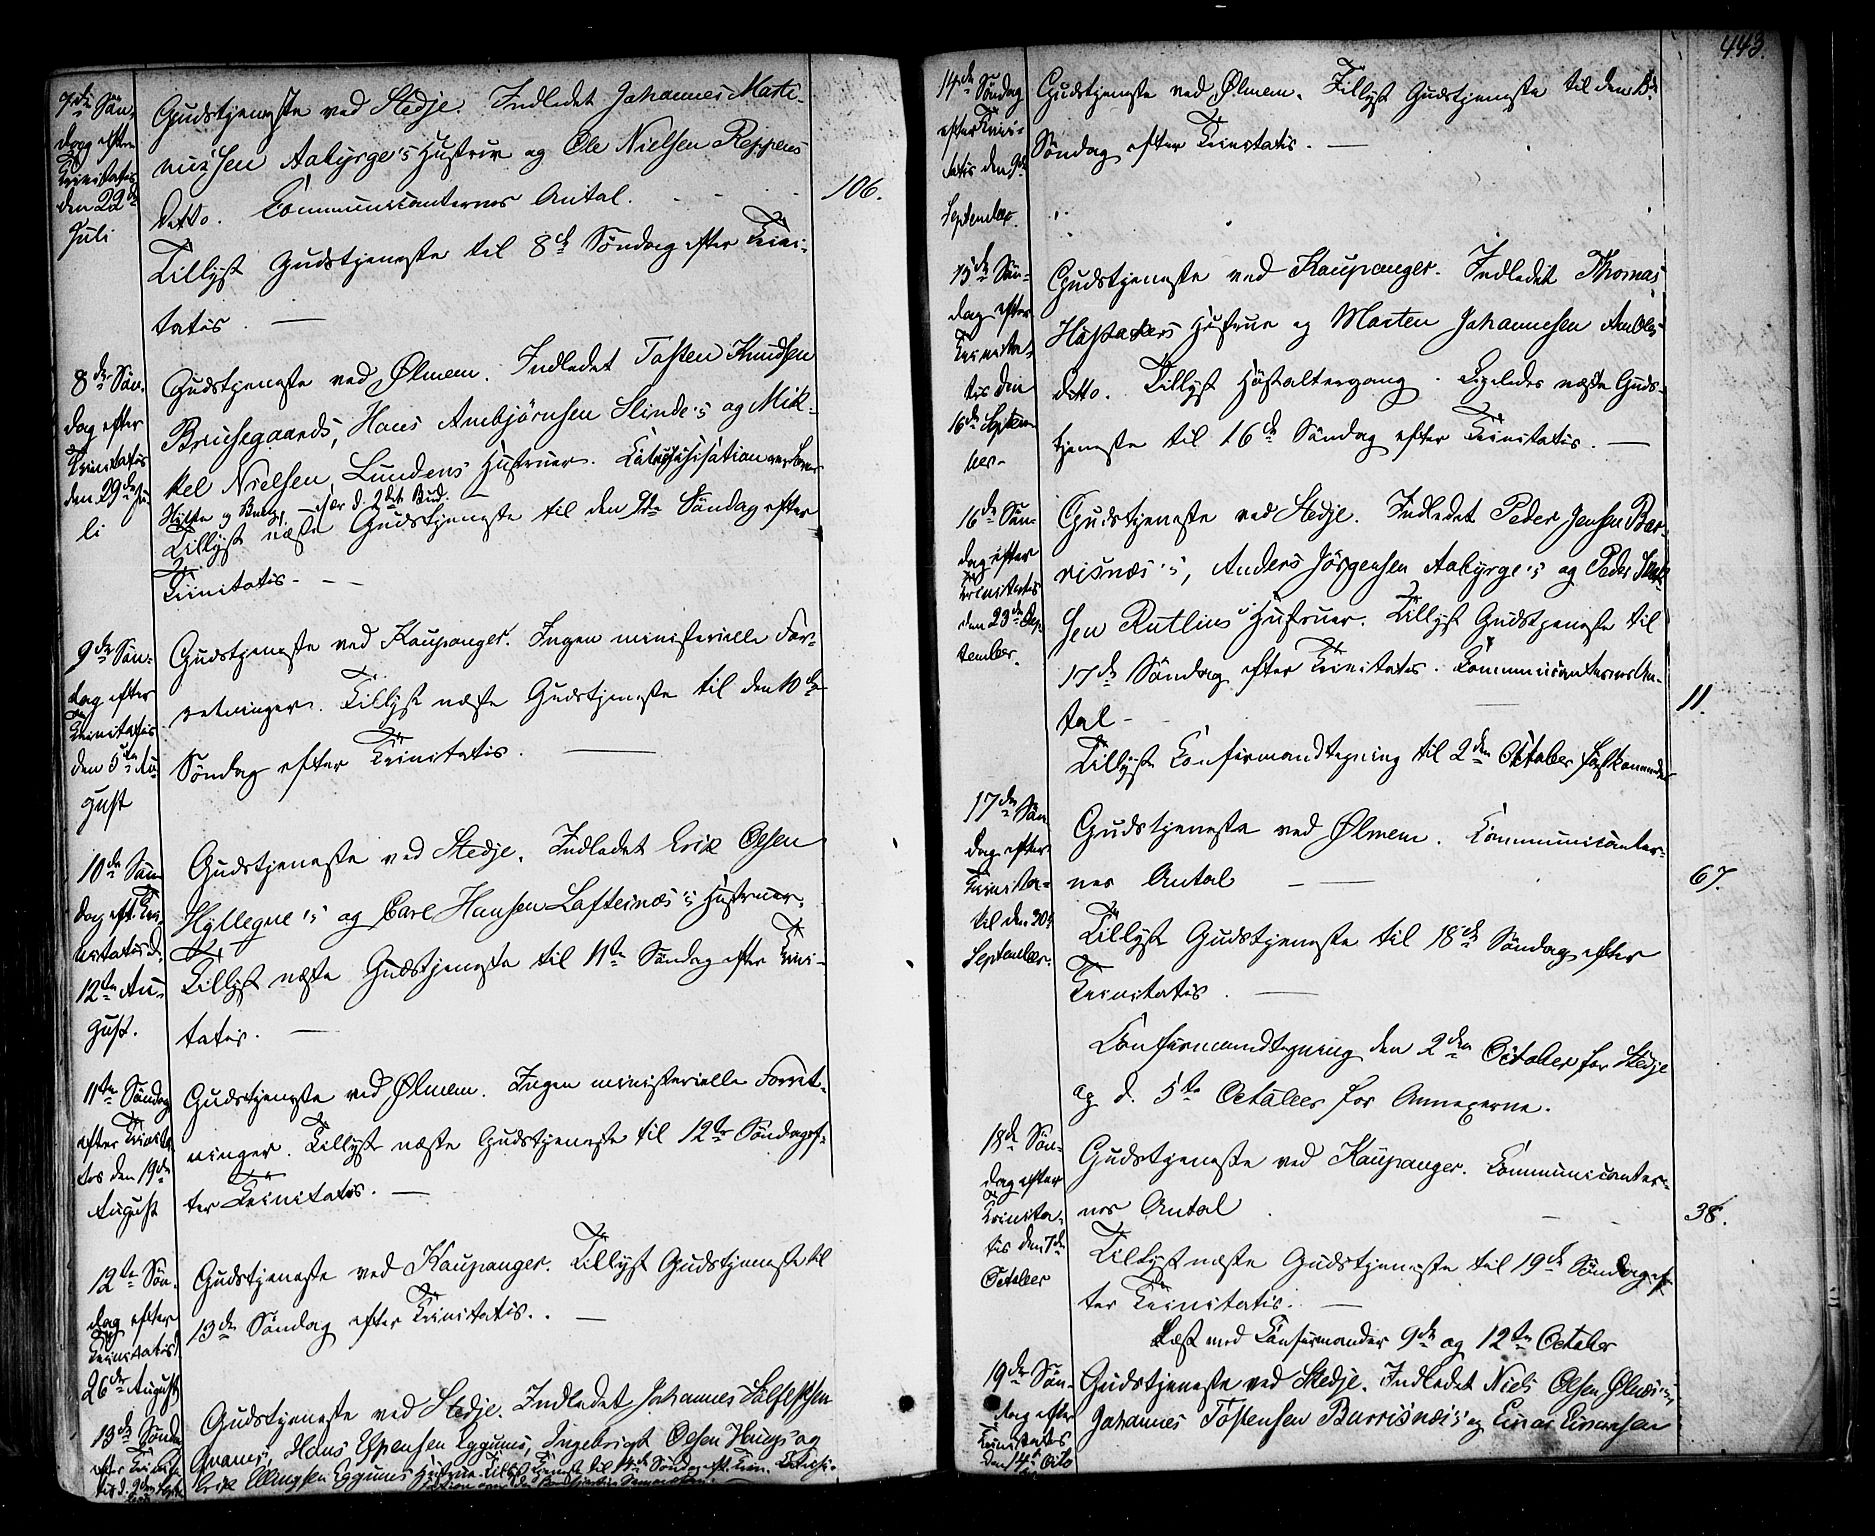 7de Søn-
dag efter
Trinitatis
den 22de
Juli
Gudstjeneste ved Stedje. Indledet Johannes Marti-
nussen Aabyrge's Hustrue og Ole Nielsen Reppens
Detto. Communicanternes Antal.
106.
Tillyst Gudstjeneste til 8de Søndag efter Trini-
tatis. —
8de Søn-
dag efter
Trinitatis
den 29de Ju-
li
Gudstjeneste ved Ølmem. Indledet Tosten Knudsen
Bruisegaards, Hans Ambjørnsen Slinde's og Mik-
kel Nielsen Lundens Hustruer. Catechisation over
d. 2det Bud. —
Tillyst næste Gudstjeneste til den 9de Søndag efter
Trinitatis. —
9de Søn-
dag efter
Trinitatis
den 5te Au-
gust
Gudstjeneste ved Kaupanger. Ingen ministerielle For-
retninger. Tillyst næste Gudstjeneste til den 10de
Søndag efter Trinitatis. —
10de Søn-
dag eft. Tri-
nitatis d.
12te Au-
gust.
Gudstjeneste ved Stedje. Indledet Erik Olsen
Hyllegne's og Carl Hansen Loftesnæs's Hustruer.
Tillyst næste Gudstjeneste til 11te Søndag efter Trini-
tatis. —
11te Søndag
efter Trinita-
tis den 19de
August
Gudstjeneste ved Ølmem. Ingen ministerielle Forret-
ninger. Tillyst næste Gudstjeneste til 12te Søndag ef-
ter Trinitatis. —
12te Søn-
dag efter
Trinitatis
26de August
Gudstjeneste ved Kaupanger. Tillyst Gudstjeneste til
13de Søndag efter Trinitatis. —
13de Sønda
efter Trinita
tis d. 2den
Gudstjeneste ved Stedje. Indledet Johannes
Hans Espensen Eggums, Ingebrigt Olsen Haugs og
Erik Ellingsen Eggums Hustrue. Tillyst Tjeneste til 14de Søndag eft. Trin.
443.
14de Søndag
efter Trini-
tatis den 9de
September.
Gudstjeneste ved Ølmem. Tillyst Gudstjeneste til den 15de
Søndag efter Trinitatis. —
15de Søn-
dag efter
Trinita-
tis den
16de Septem-
ber.
Gudstjeneste ved Kaupanger. Indledet Thomas
Hustrue og Marten Johannesen Amble
ditto. Tillyst Høstaltergang. Ligeledes næste Guds-
tjeneste til 16de Søndag efter Trinitatis. —
16de Søn-
dag efter
Trinitatis
den 23de Sep-
tember.
Gudstjeneste ved Stedje. Indledet Peder Jensen Bar-
risnæs's, Anders Jørgensen Aabyrge's og Peder
sen Rutlins Hustruer. Tillyst Gudstjeneste til
17de Søndag efter Trinitatis. Communicanternes An-
tal —
11.
Tillyst Confirmandtegning til 2den October førstkommende
17de Søn
dag efter
Trinita-
til den 30te
September.
Gudstjeneste ved Ølmem. Communicanter-
nes Antal —
67.
Tillyst Gudstjeneste til 18de Søndag efter
Trinitatis. —
Confirmandtegning den 2den October for Stedje
og d. 5te October for Annexerne.
18de Søn-
dag efter
Trinita-
tis den 7de
October
Gudstjeneste ved Kaupanger. Communicanter-
nes Antal
38.
Tillyst næste Gudstjeneste til 19de Søndag ef-
ter Trinitatis. —
Læst med Confirmander 9de og 12te October
19de Søn-
dag efter
Trinitatis
den 14de Octo
Gudstjeneste ved Stedje. Indledet Niels Olsen Ølnæs's,
Johannes Tostensen Barrisnæs's og Einar Einarsen